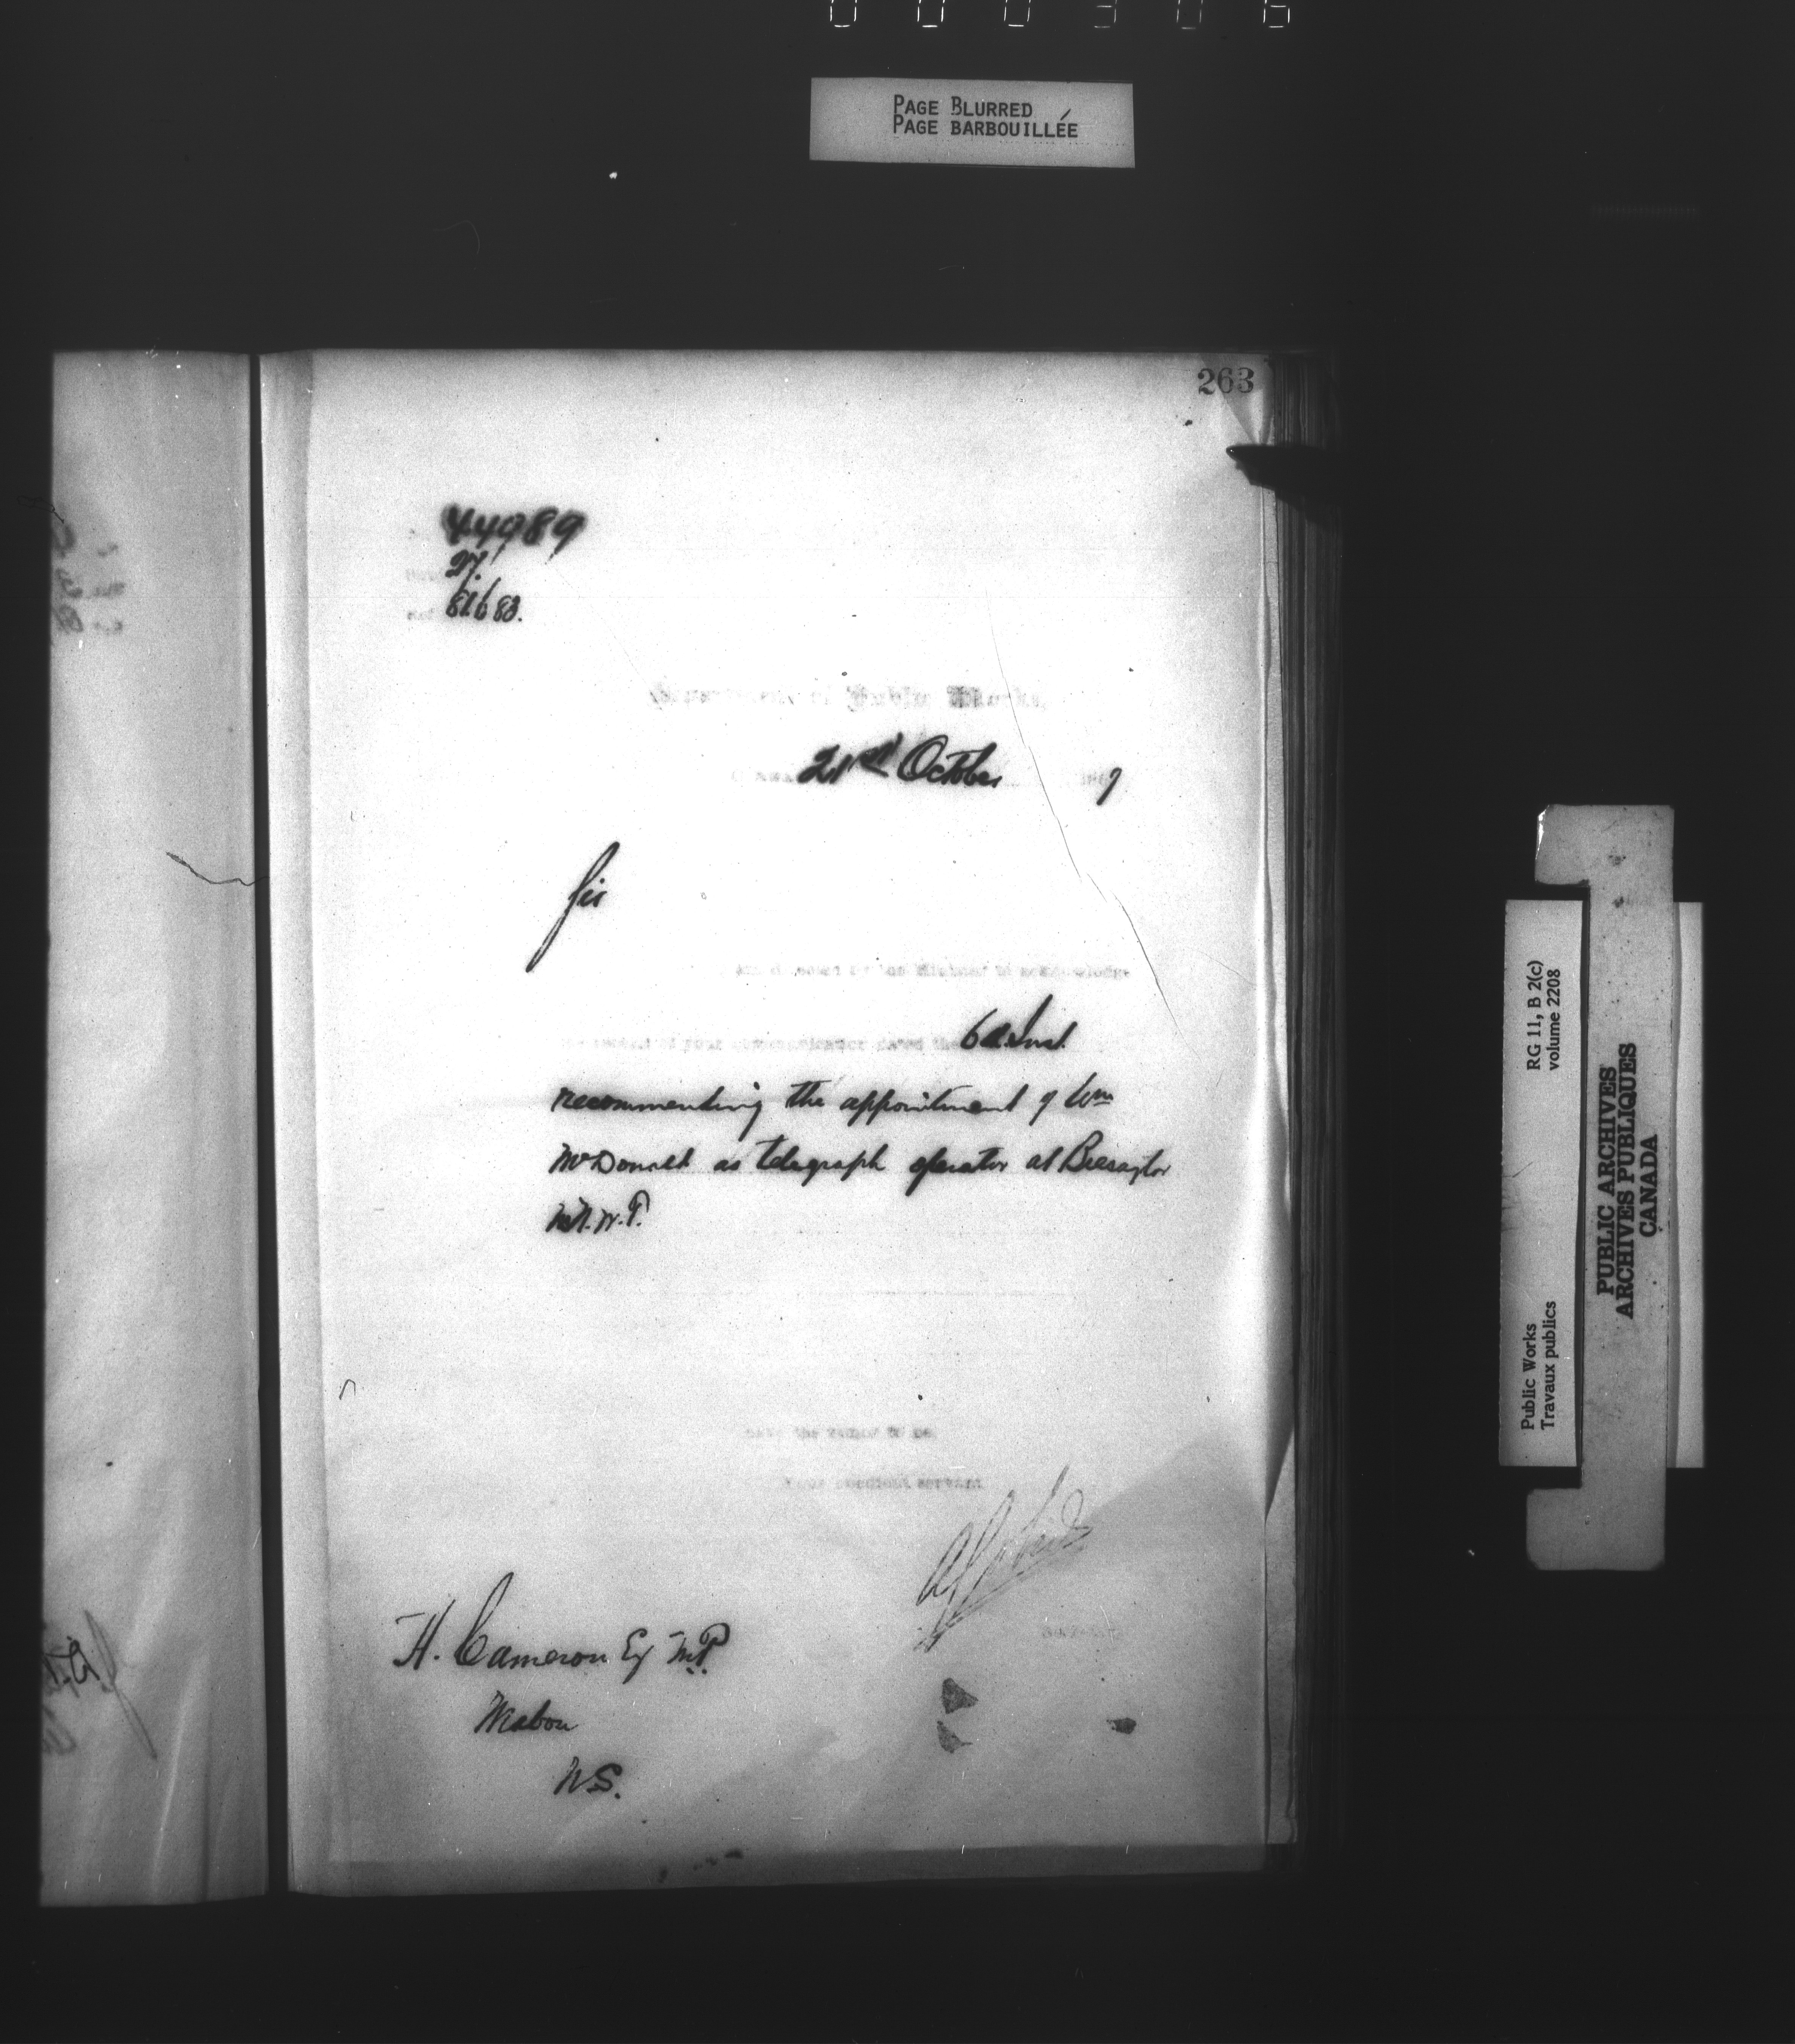 000306
PAGE BLURRED
PAGE BARBOUILLÉE
263
44989
27.
81683.
Department of Public Works,
21st October 7
Sir
am directed by the Minister to acknowledge
the receipt of your communication dated the 6th Inst.
recommending the appointment of Wm
McDonald as telegraph operator at Bresaylor
N.W.T.
have the honor to be
Your obedient servant
H. Cameron Esq M.P.
Mabou
N.S.
RG 11, B 2(c)
volume 2208
Public Works
Travaux publics
PUBLIC ARCHIVES
ARCHIVES PUBLIQUES
CANADA